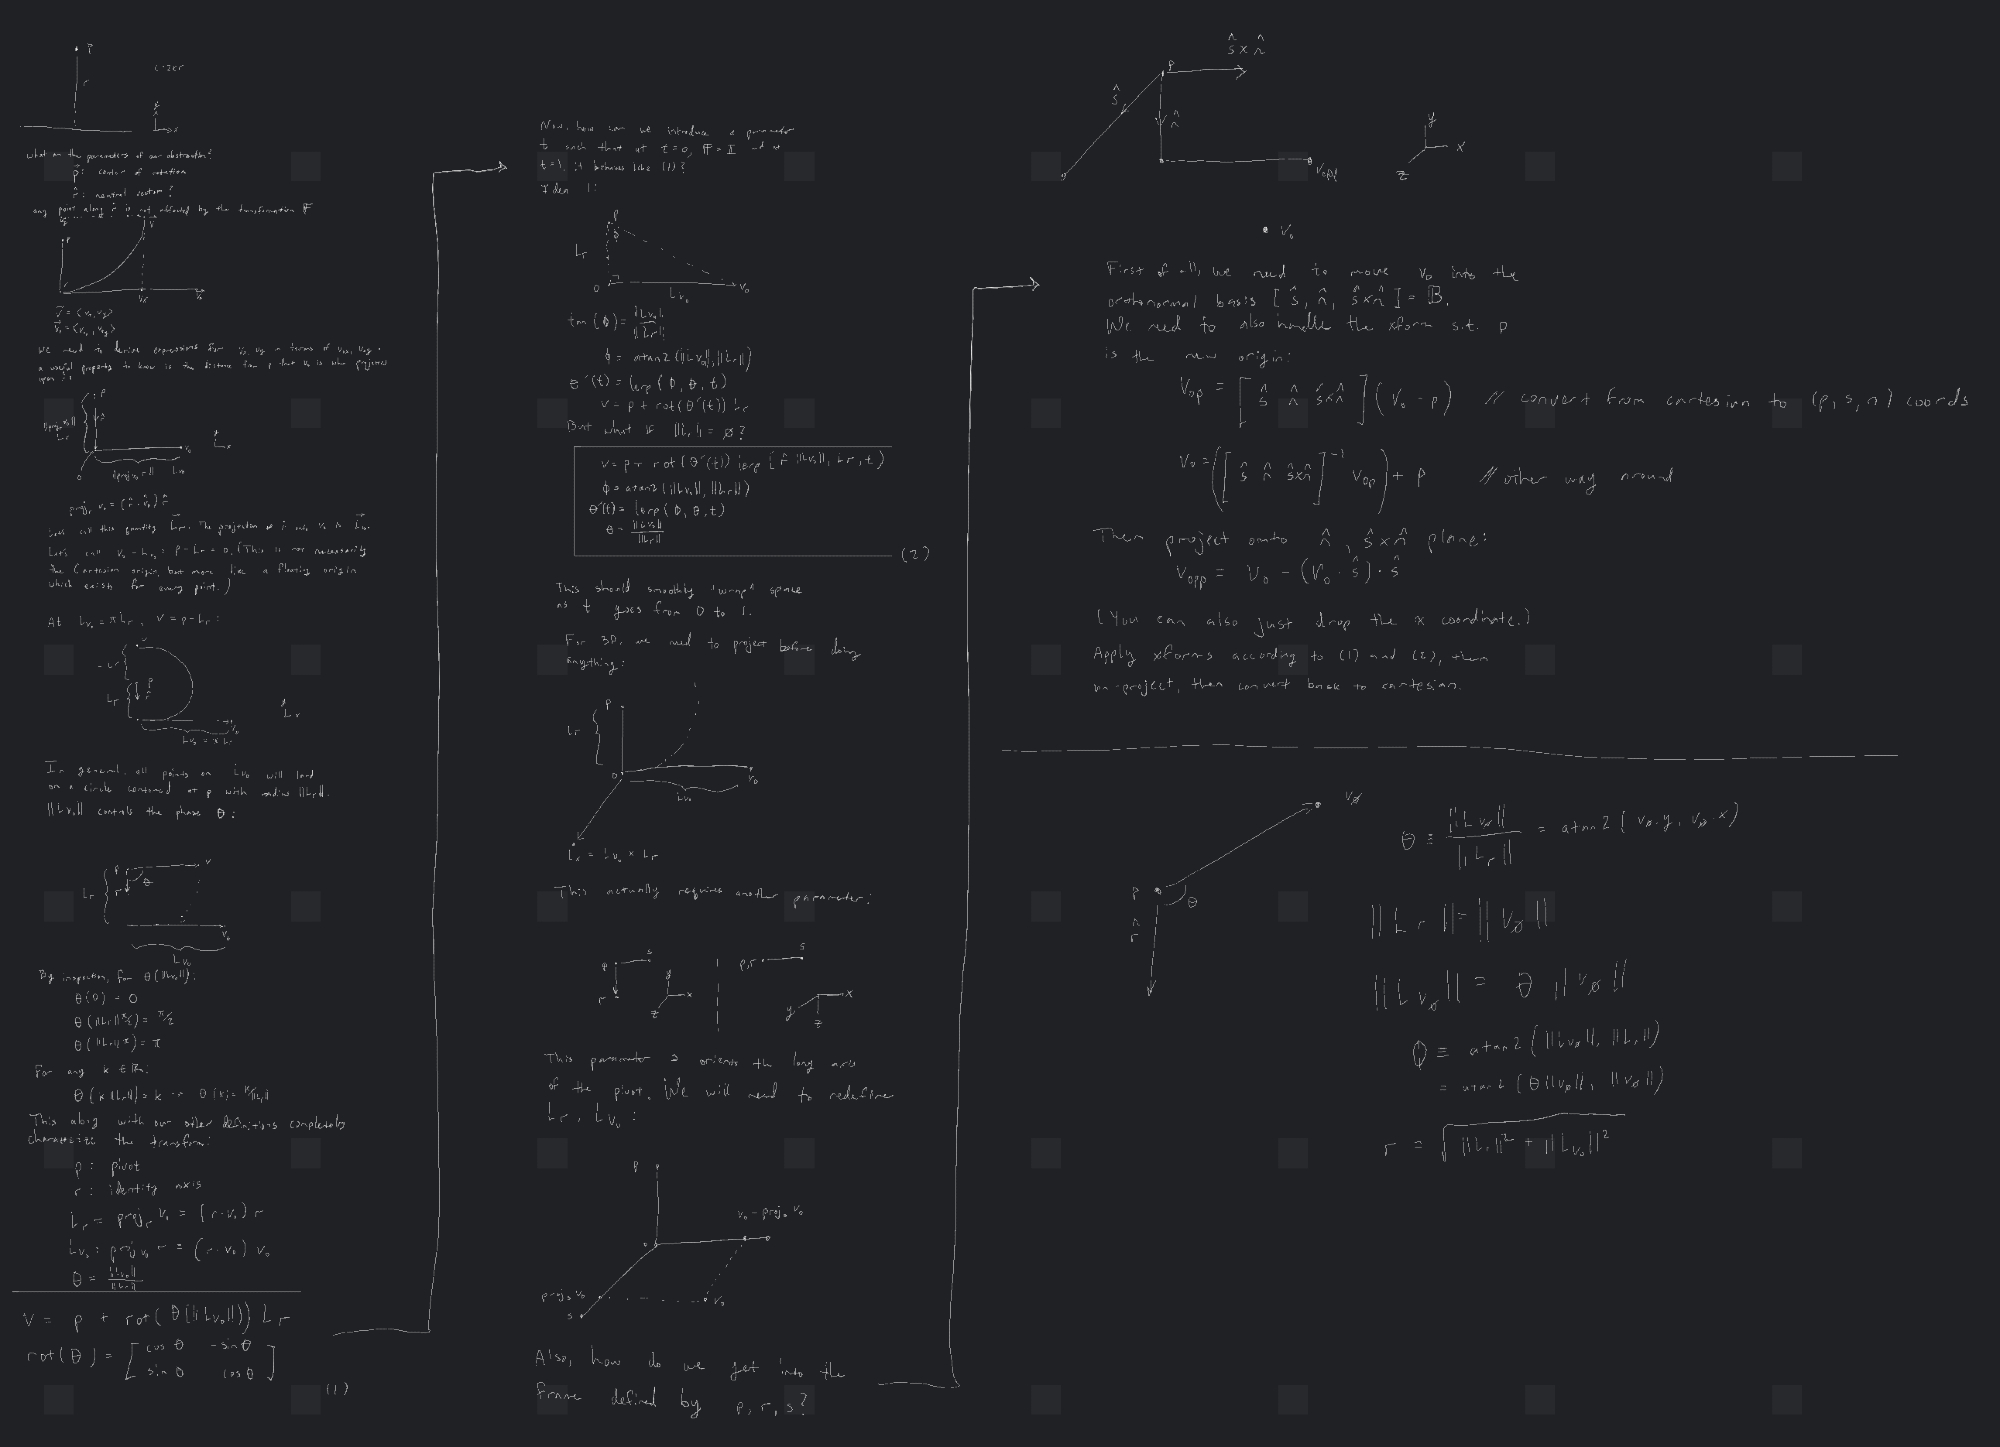 P
r
x
what are the parameters of our abstraction?
p: center of rotation
r̂: neutral vector?
any point along r̂ is not affected by the transformation F
P
v
v₀
We need to derive expressions for in terms of
a useful property to know is the distance from p that v₀ is when projected
upon
p
Lr
v₀
x
Lv₀
0
Let's call this quantity Lr. The projection
Let's call v₀ - Lv₀ = p - Lr = 0. (This is not necessarily
the Cartesian origin, but more like a floating origin
which exists for every point.)
At Lv₀ = πLr, v = p - Lr:
Lr
P
r̂
v₀
Lv₀ = πLr
In general, all points on Lv₀ will land
on a circle centered at p with radius ||Lr||.
||Lv₀|| controls the phase θ:
p
v
r
θ
Lr
v₀
Lv₀
By inspection, for θ(||Lv₀||):
θ(0) = 0
θ(||Lr|| π/2) = π/2
θ(||Lr|| π) = π
For any k ∈ R:
θ(k||Lr||) = k
This along with our other definitions completely
characterize the transform:
p: pivot
r: identity axis
Lr = proj_r v₀ = (r·v₀) r
Lv₀: proj_v₀ r = (r·v₀) v₀
θ = ||Lv₀|| / ||Lr||
v = p + rot(θ(||Lv₀||)) Lr
rot(θ) = [cos θ -sin θ
sin θ cos θ]
(1)
Now, how can we introduce a parameter
t such that at t=0, F = I and at
t=1, it behaves like (1)?
Idea 1:
p
ϕ
Lr
0
v₀
Lv₀
tan(ϕ) = ||Lv₀|| / ||Lr||
ϕ = atan2(||Lv₀||, ||Lr||)
θ'(t) = lerp(ϕ, θ, t)
v = p + rot(θ'(t)) Lr
But what if ||Lr|| = ∅?
v = p + rot(θ'(t)) lerp(r̂ ||Lv₀||, Lr, t)
ϕ = atan2(||Lv₀||, ||Lr||)
θ'(t) = lerp(ϕ, θ, t)
θ = ||Lv₀|| / ||Lr||
(2)
This should smoothly "wrap" space
as t goes from 0 to 1.
For 3D, we need to project before doing
anything:
p
Lr
0
v₀
Lv₀
Lx = Lv₀ × Lr
This actually requires another parameter:
s
r
y
x
z
p,r
s
x
y
z
This parameter s orients the long axis
of the pivot. We will need to redefine
Lr, Lv₀:
p
v₀ - proj_s v₀
proj_s v₀
v₀
s
Also, how do we get into the
frame defined by p, r, s?
ŝ × n̂
p
ŝ
n̂
Vopp
y
x
z
V₀
First of all, we need to move v₀ into the
orthonormal basis [ŝ, n̂, ŝ×n̂] = B.
We need to also handle the xform s.t. p
is the new origin:
Vop = [ŝ n̂ ŝ×n̂] (V₀ - p) // convert from cartesian to (p, s, n) coords
V₀ = ([ŝ n̂ ŝ×n̂]⁻¹ Vop) + p // other way around
Then project onto n̂, ŝ×n̂ plane:
Vopp = V₀ - (V₀ · ŝ) · ŝ
(You can also just drop the x coordinate.)
Apply xforms according to (1) and (2), then
un-project, then convert back to cartesian.
V∅
p
θ
r̂
θ ≡ ||Lv∅|| / ||Lr|| = atan2(v∅.y, v∅.x)
||Lr|| = ||V∅||
||Lv∅|| = θ ||v∅||
ϕ ≡ atan2(||Lv∅||, ||Lr||)
= atan2(θ||v∅||, ||v∅||)
r = √(||Lr||² + ||Lv₀||²)